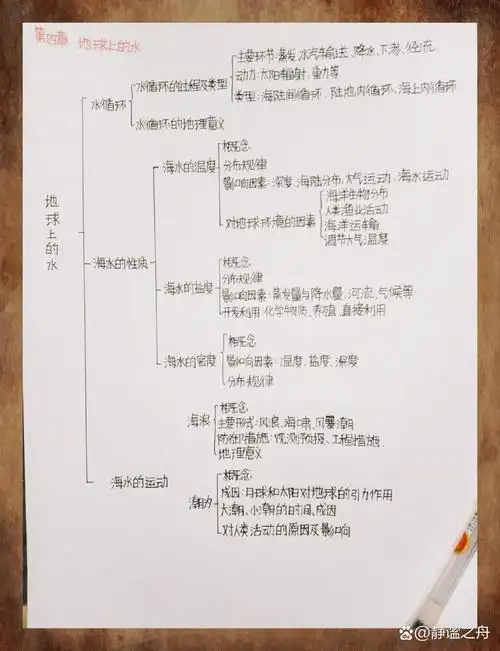 第四章 地球上的水
地球上的水
水循环
水循环的过程及类型
主要环节:蒸发、水汽输送、降水、下渗、径流
动力:太阳辐射、重力等
类型:海陆间循环、陆地内循环、海上内循环
水循环的地理意义
海水的性质
海水的温度
概念
分布规律
影响因素:深度、海陆分布、大气运动、海水运动
对地球环境的因素
海洋生物分布
人类渔业活动
海洋运输
调节大气温度
海水的盐度
概念
分布规律
影响因素:蒸发量与降水量、河流、气候等
开发利用:化学物质、养殖、直接利用
海水的密度
概念
影响因素:温度、盐度、深度
分布规律
海水的运动
海浪
概念
主要形式:风浪、海啸、风暴潮
防御措施:观测预报、工程措施
地理意义
潮汐
概念
成因:月球和太阳对地球的引力作用
大潮、小潮的时间、成因
对人类活动的原因及影响
静谧之舟